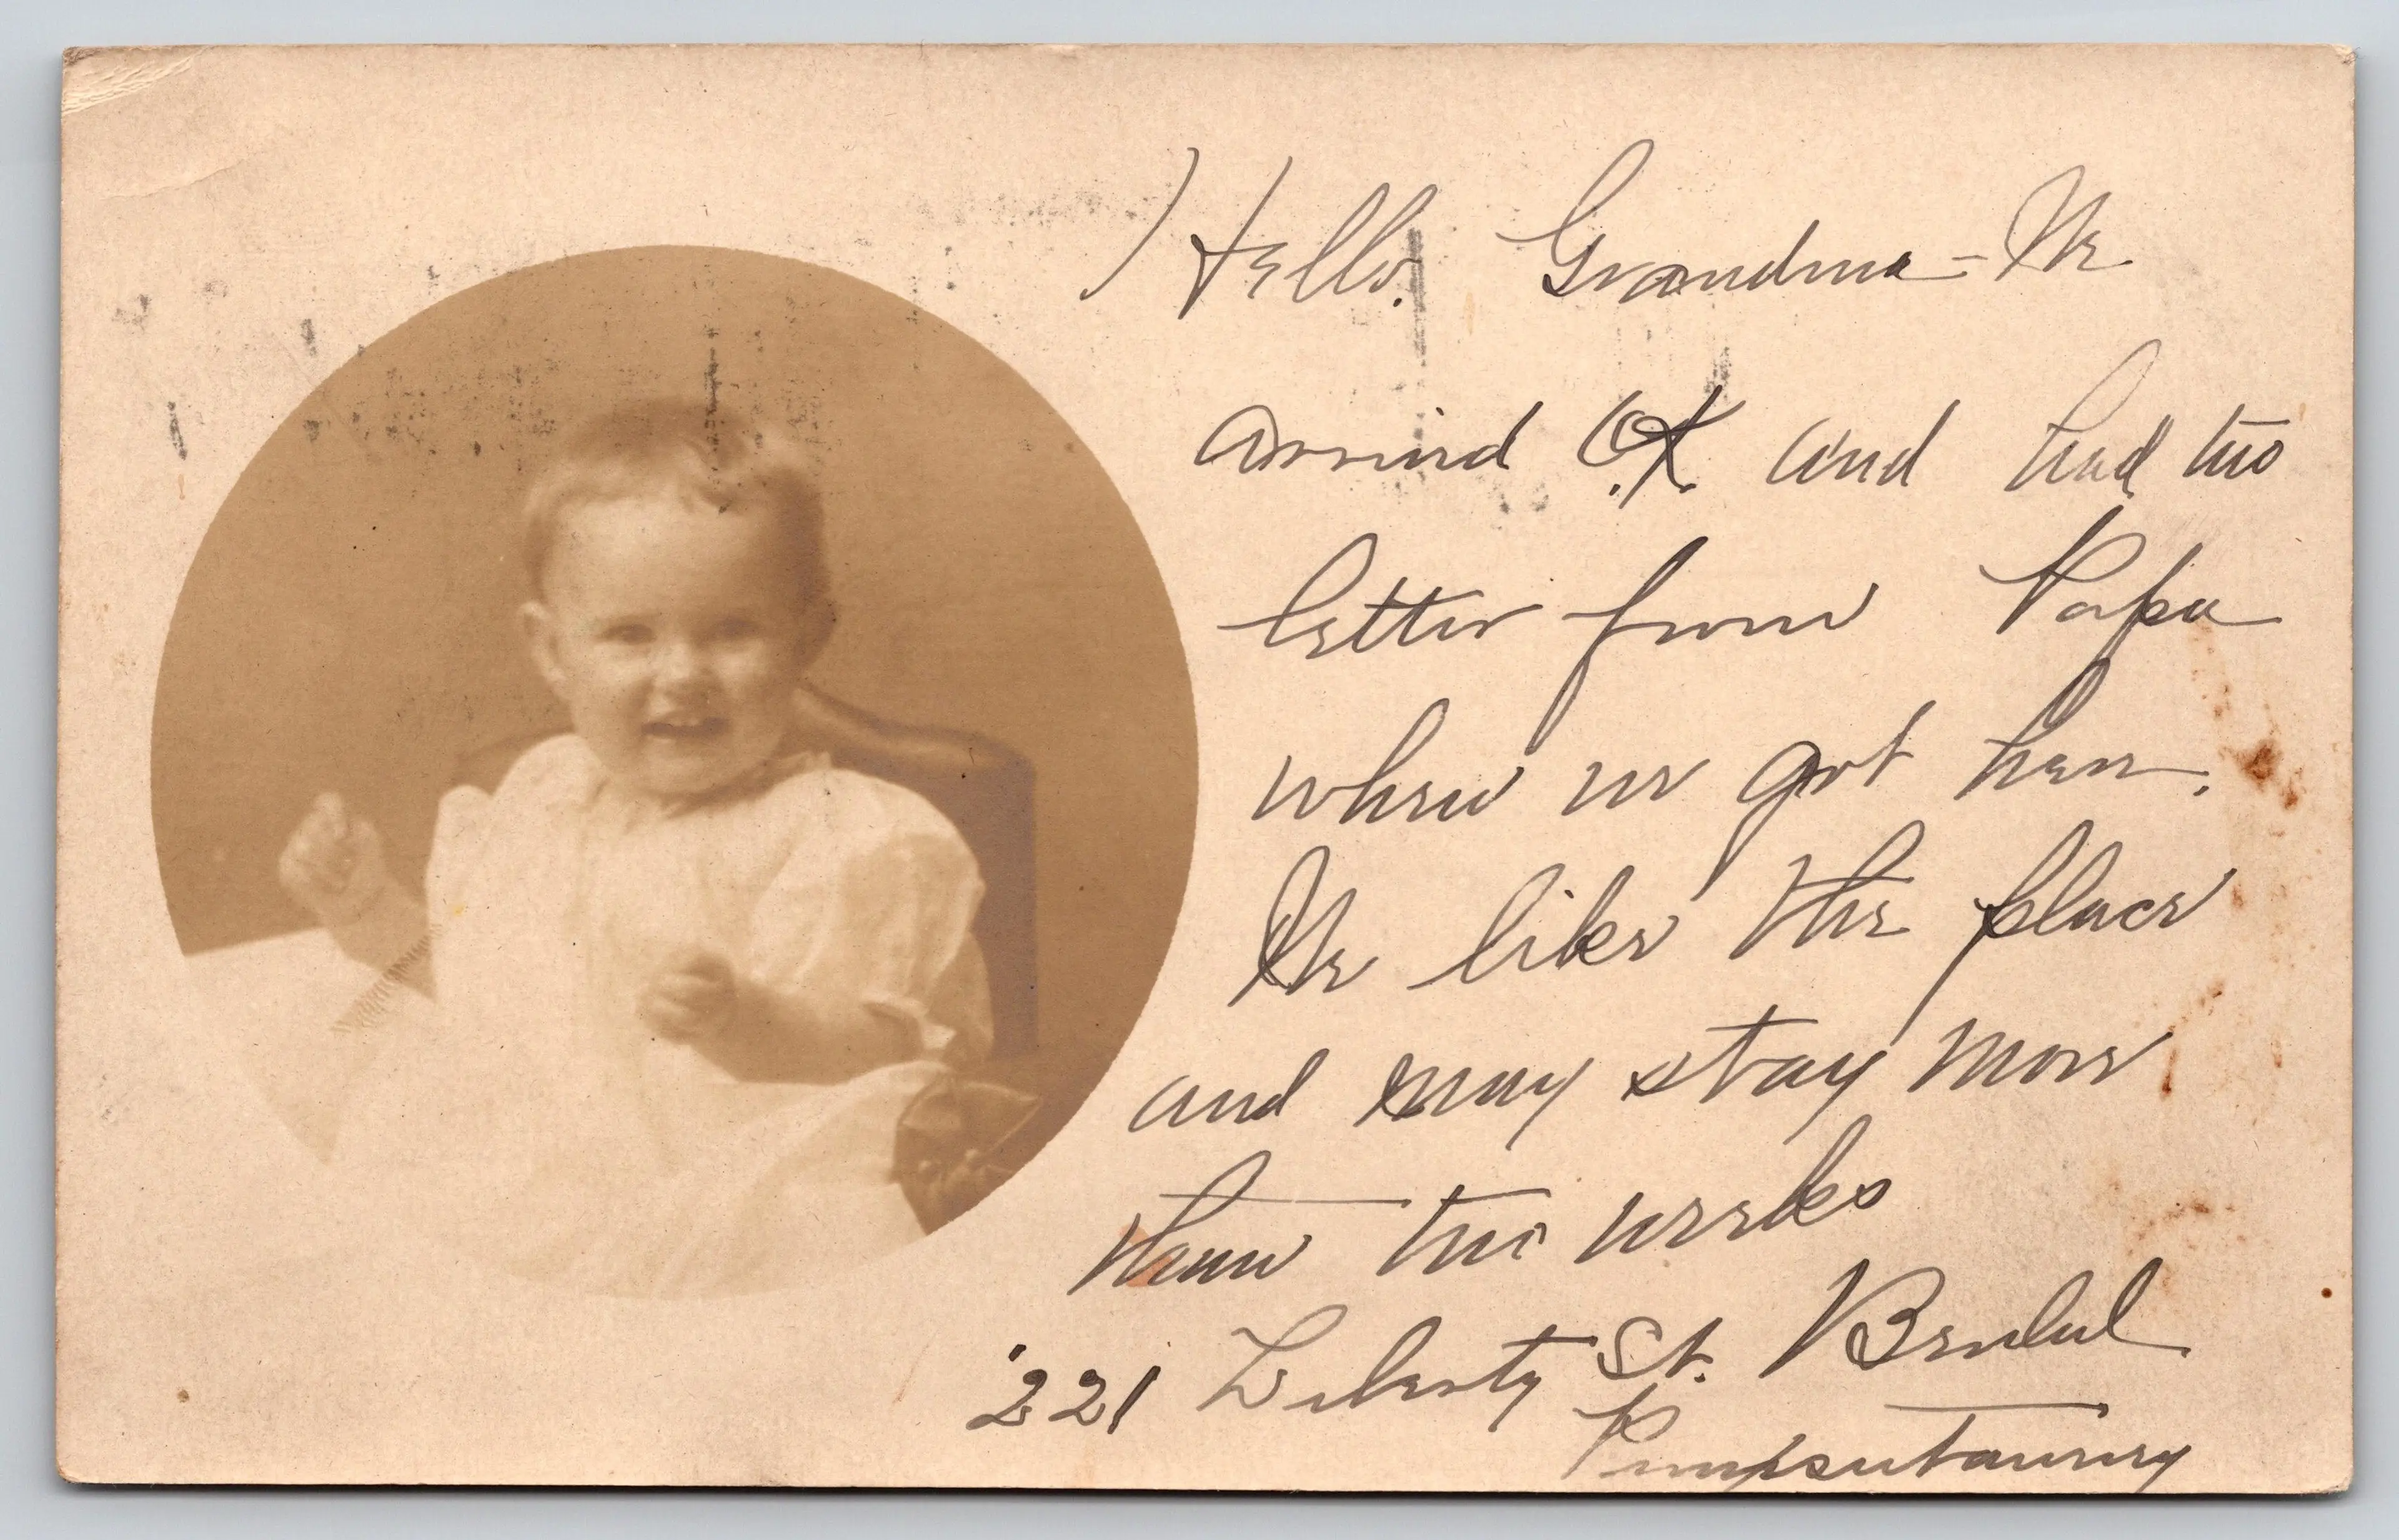 Hello. Grandma - We
arrived O.K. and had two
letter from Papa
when we got here.
We like the place
and may stay more
than two weeks
221 Liberty St.
Punxsutawney